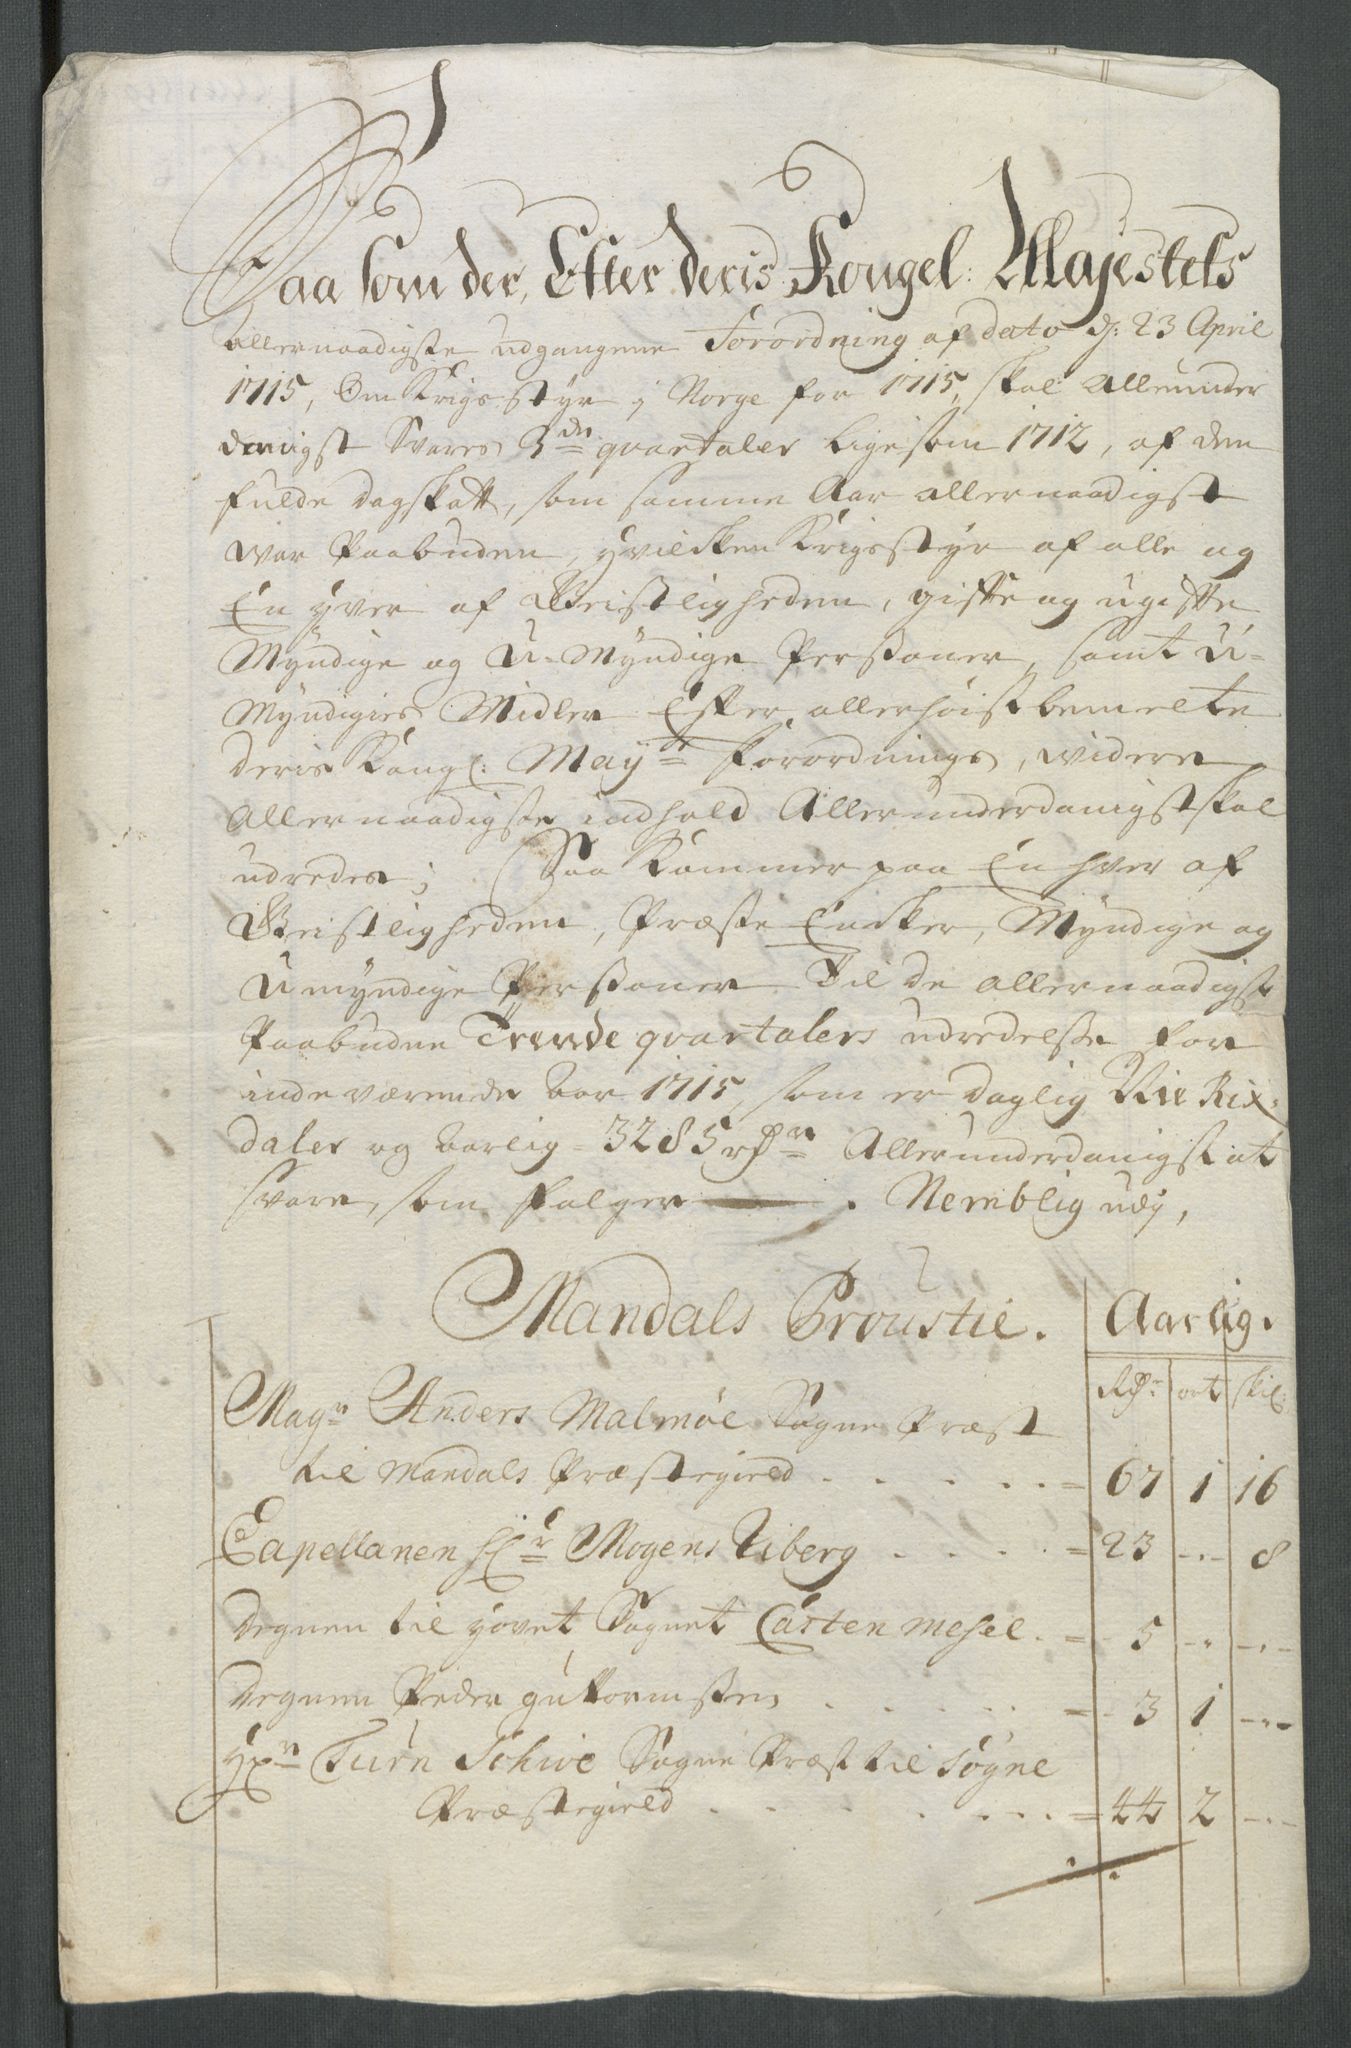 Saa som der, Efter deris Kongel: Majestets
allernaadigste udgangene Forordning af dato d: 23 April
1715, Om Krigs styr i Norge for 1715, skal allerunder
danigst Svares 3de qvartaler ligesom 1712, af den
fulde dagskatt, som samme Aar allernaadigst
war Paabuden, hvilcken Krigsstyr af alle og
En hver af Geistligheden, giffte og ugiffte
Myndige og U-Myndige Persaaner, samt U-
Myndiges Midler Efter allerhøist bemelte
deris Kongl: Mayts Forordnings, widere
Allernaadigste indhold Allerunderdanigst skal
udredes; Saa kommer paa En hver af
Geistligheden, Præste Encker, Myndige og
Umyndige Persohner Til de allernaadigst
Paabudne Trende qvartalers udredelse for
indeværende Aar 1715, som er daglig Nie Rix-
daler og aarlig = 3285 rdr Allerunderdanigst at
svare, som følger . Nemblig udj,
Mandals Proustie. Aarlig.
Rdr ort skil:
Magr Anders Malmøe Sogne Præst
til Mandals Præstegield = 67 1 16
Capellanen Hr Mogens Wiberg = 23 - 8
Degnen til Hovet Sognet Carsten Mesel. = 5 - -
Degnen Peder Guttormsen = 3 1 -
Hr Turn Schive Sogne Præst til Søgne
Præstegield = 44 2 -